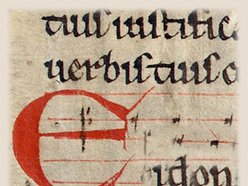 tuis iustific
uerbis tuis o
E
idon